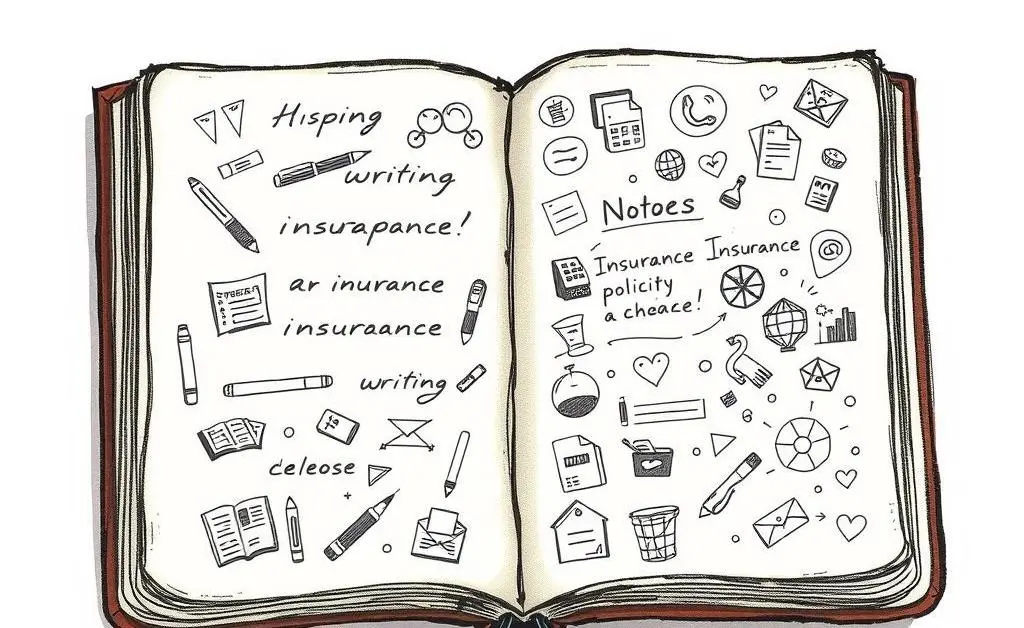 Hisping
writing
insurapance!
ar inurance
insuraance
writing
deleose
Notoes
Insurance Insurance
policity
a cheace!